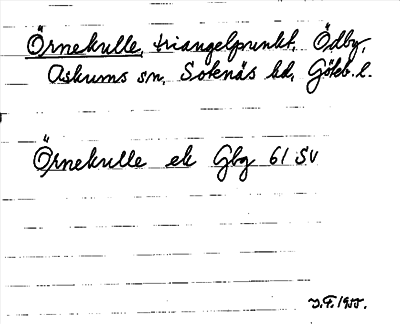 Örnekulle, triangelpunkt, Ödby,
Askums sn, Sotenäs hd, Göteb. l.
Örnekulle ek Gbg 61 SV
J.F. 1955.